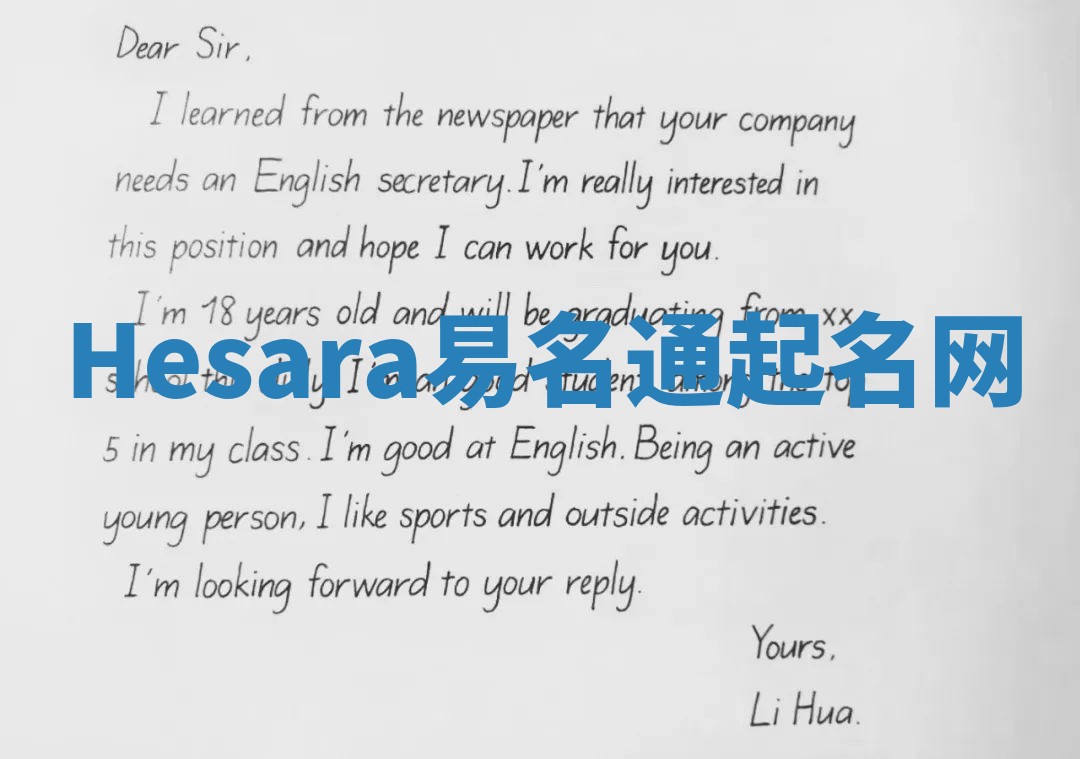 Dear Sir,
I learned from the newspaper that your company
needs an English secretary. I'm really interested in
this position and hope I can work for you.
I'm 18 years old and will be graduating from xx
Hesara易名通起名网
school this July. I'm a good student among the top
5 in my class. I'm good at English. Being an active
young person, I like sports and outside activities.
I'm looking forward to your reply.
Yours,
Li Hua.